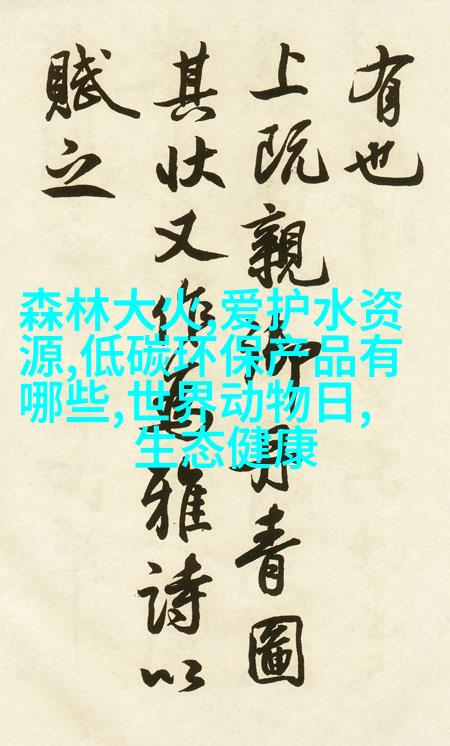 有也
上既親御丹青圖
其状又作為雅詩以
賦之
森林大火,爱护水资
源,低碳环保产品有
哪些,世界动物日,
生态健康